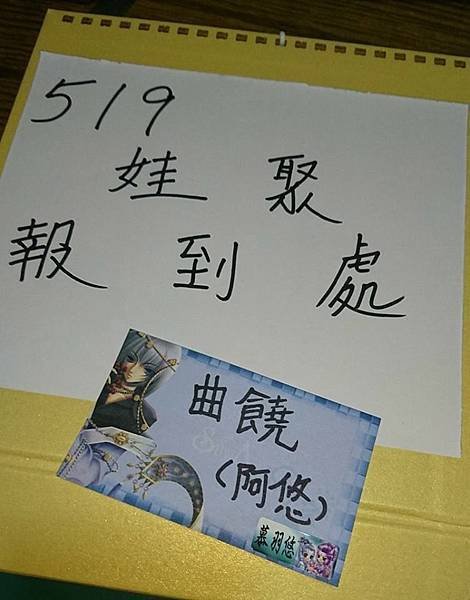 519
娃聚
報到處
曲饒
(阿悠)
慕羽悠